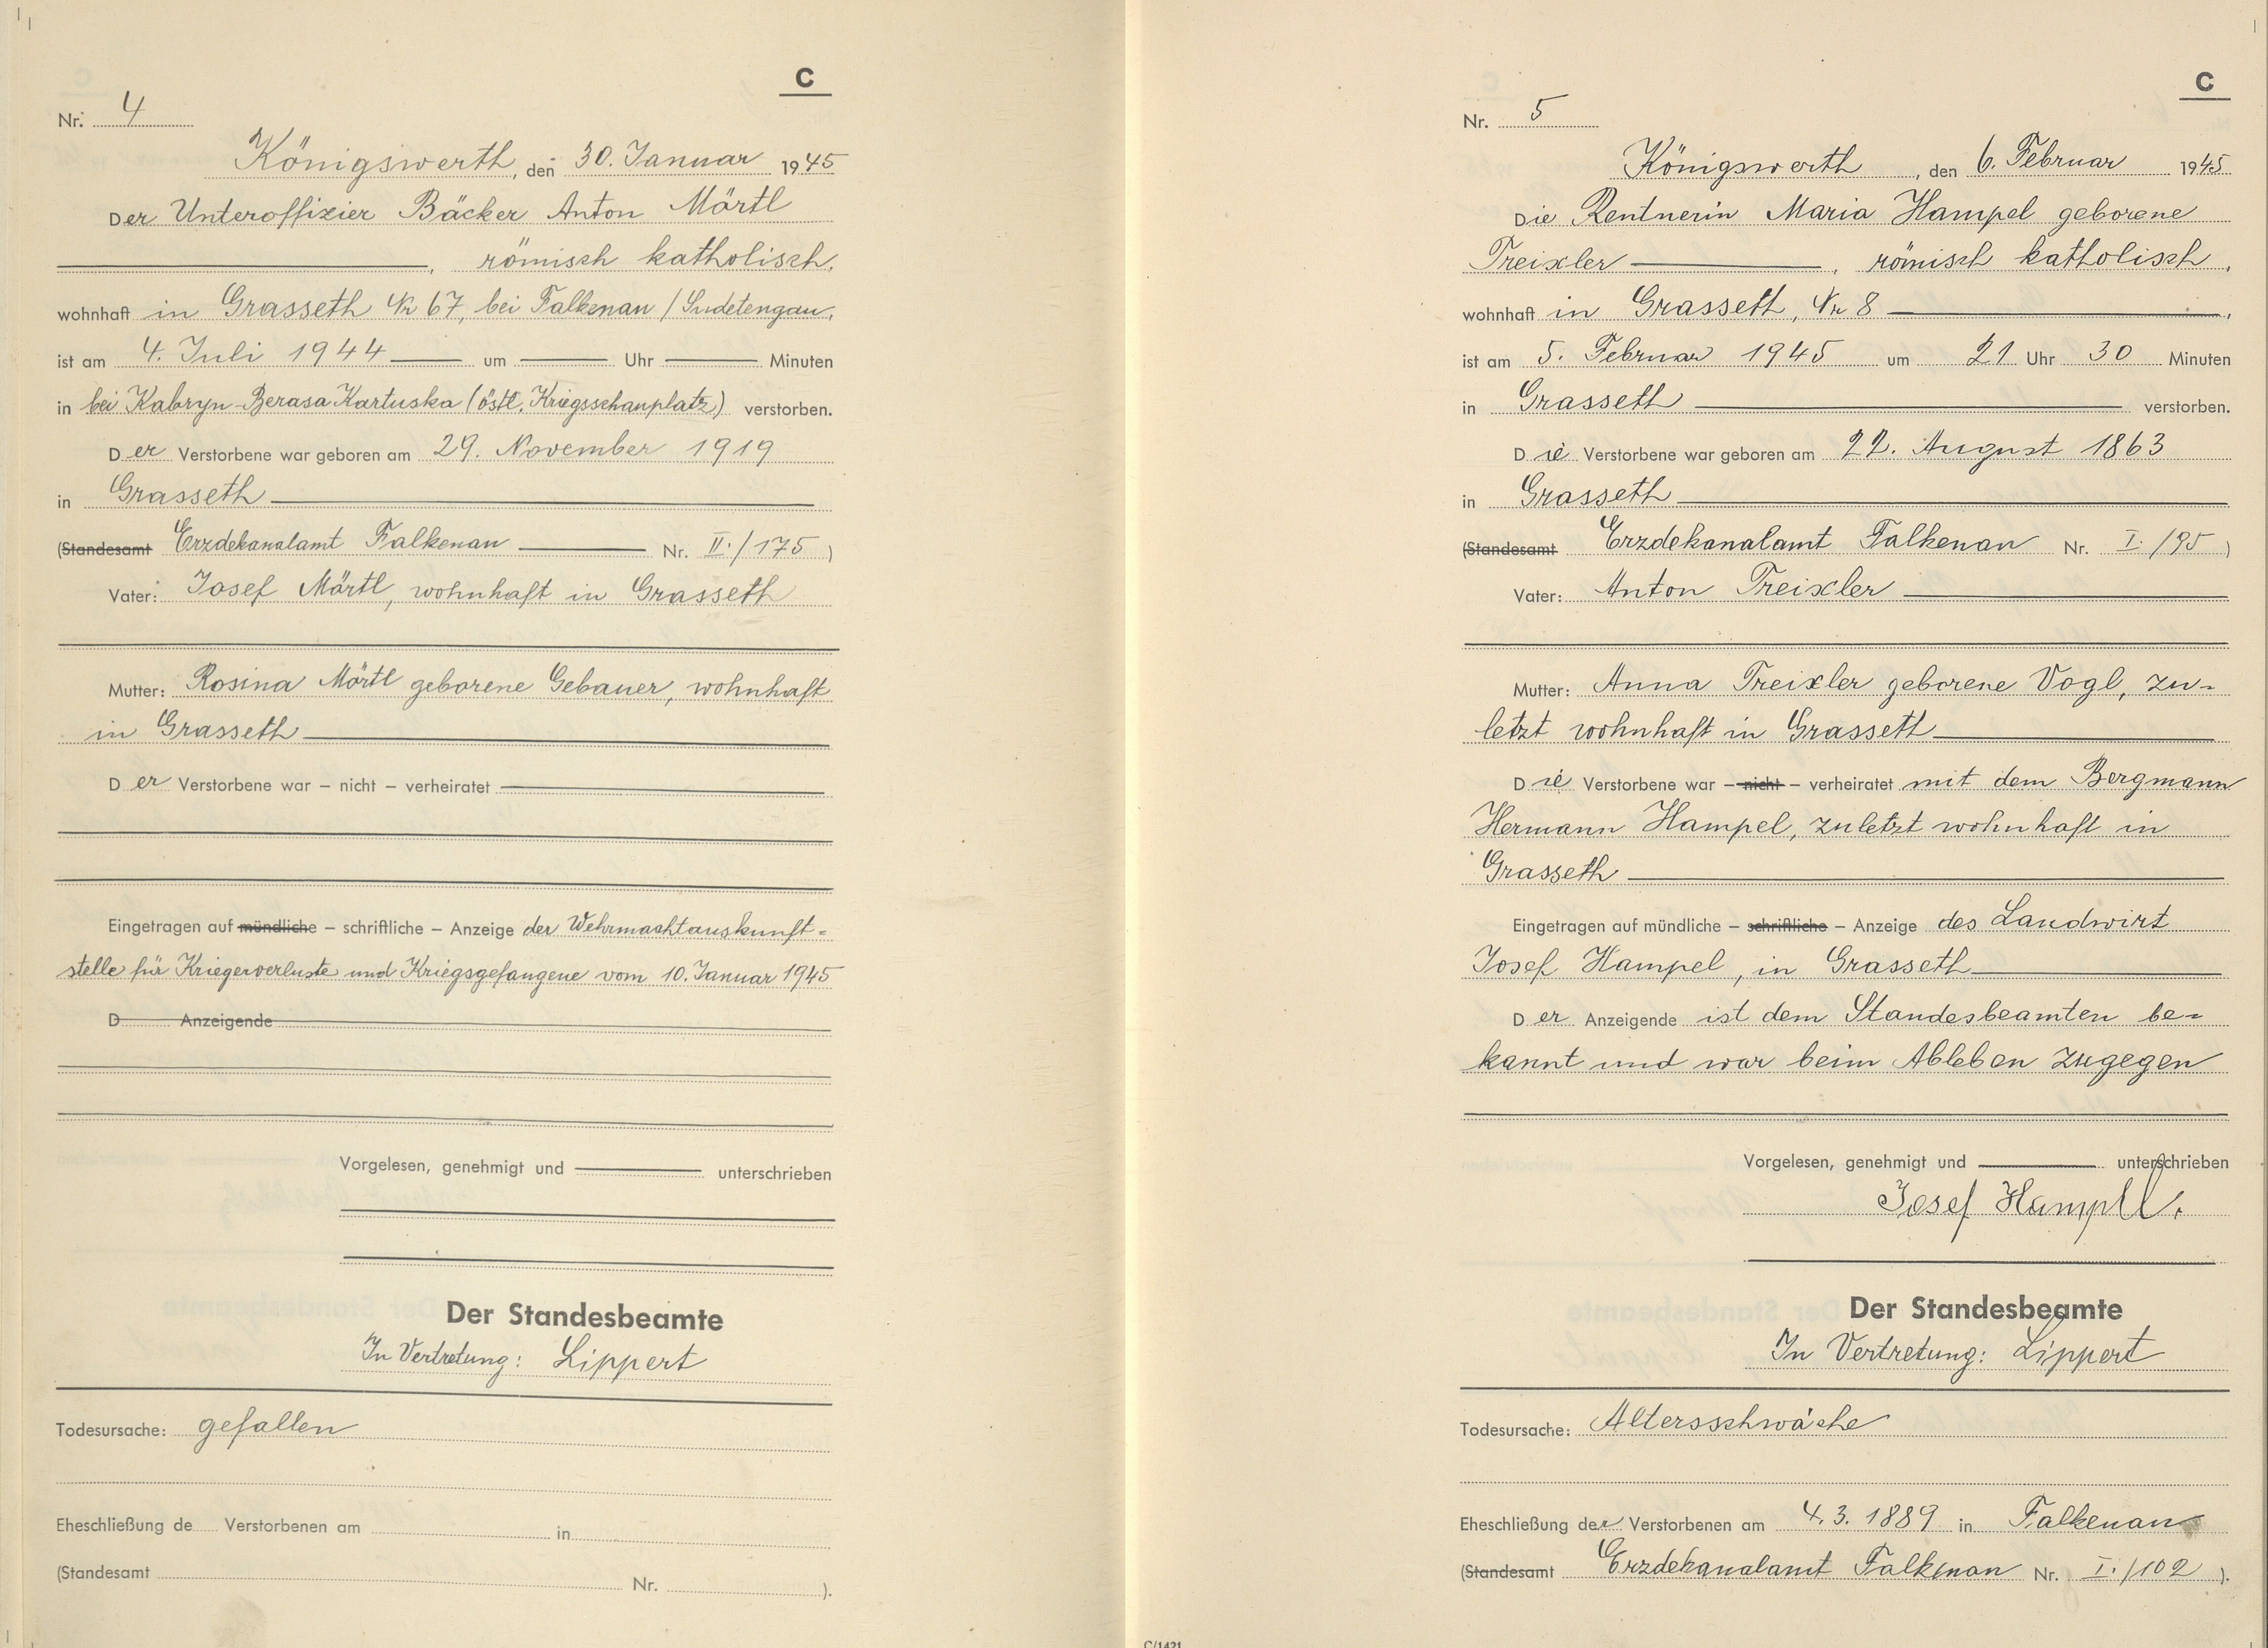 C
Nr. 4
Königswerth, den 30. Januar 1945
Der Unteroffizier Bäcker Anton Mörtl
, römisch katholisch,
wohnhaft in Grasseth Nr 67, bei Falkenau / Sudetengau,
ist am 4. Juli 1944 um Uhr Minuten
in bei Kabryn-Berasa Kartuska (östl. Kriegsschauplatz) verstorben.
Der Verstorbene war geboren am 29. November 1919
in Grasseth
(Standesamt Erzdekanalamt Falkenau Nr. II./175 )
Vater: Josef Mörtl, wohnhaft in Grasseth
Mutter: Rosina Mörtl geborene Gebauer, wohnhaft
in Grasseth
Der Verstorbene war – nicht – verheiratet
Eingetragen auf mündliche – schriftliche – Anzeige der Wehrmachtauskunft=
stelle für Kriegerverluste und Kriegsgefangene vom 10. Januar 1945
D Anzeigende
Vorgelesen, genehmigt und unterschrieben
Der Standesbeamte
In Vertretung: Lippert
Todesursache: gefallen
Eheschließung de Verstorbenen am in
(Standesamt Nr. ).
C
Nr. 5
Königswerth, den 6. Februar 1945
Die Rentnerin Maria Hampel geborene
Treixler , römisch katholisch,
wohnhaft in Grasseth, Nr 8 ,
ist am 5. Februar 1945 um 21 Uhr 30 Minuten
in Grasseth verstorben.
Die Verstorbene war geboren am 22. August 1863
in Grasseth
(Standesamt Erzdekanalamt Falkenau Nr. I./95 )
Vater: Anton Treixler
Mutter: Anna Treixler geborene Vogl, zu=
letzt wohnhaft in Grasseth
Die Verstorbene war – nicht – verheiratet mit dem Bergmann
Hermann Hampel, zuletzt wohnhaft in
Grasseth
Eingetragen auf mündliche – schriftliche – Anzeige des Landwirt
Josef Hampel, in Grasseth
Der Anzeigende ist dem Standesbeamten be=
kannt und war beim Ableben zugegen
Vorgelesen, genehmigt und unterschrieben
Josef Hampl.
Der Standesbeamte
In Vertretung: Lippert
Todesursache: Altersschwäche
Eheschließung der Verstorbenen am 4.3.1889 in Falkenau
(Standesamt Erzdekanalamt Falkenau Nr. I./102 ).
C/1421